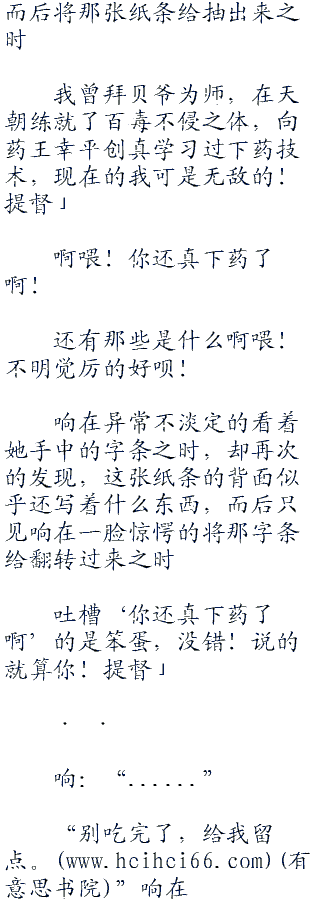 而后将那张纸条给抽出来之
时
我曾拜贝爷为师，在天
朝练就了百毒不侵之体，向
药王幸平创真学习过下药技
术，现在的我可是无敌的！
提督」
啊喂！你还真下药了
啊！
还有那些是什么啊喂！
不明觉厉的好呗！
响在异常不淡定的看着
她手中的字条之时，却再次
的发现，这张纸条的背面似
乎还写着什么东西，而后只
见响在一脸惊愕的将那字条
给翻转过来之时
吐槽‘你还真下药了
啊’的是笨蛋，没错！说的
就算你！提督」
. .
响：“......”
“别吃完了，给我留
点。(www.hcihci66.com)(有
意思书院)”响在